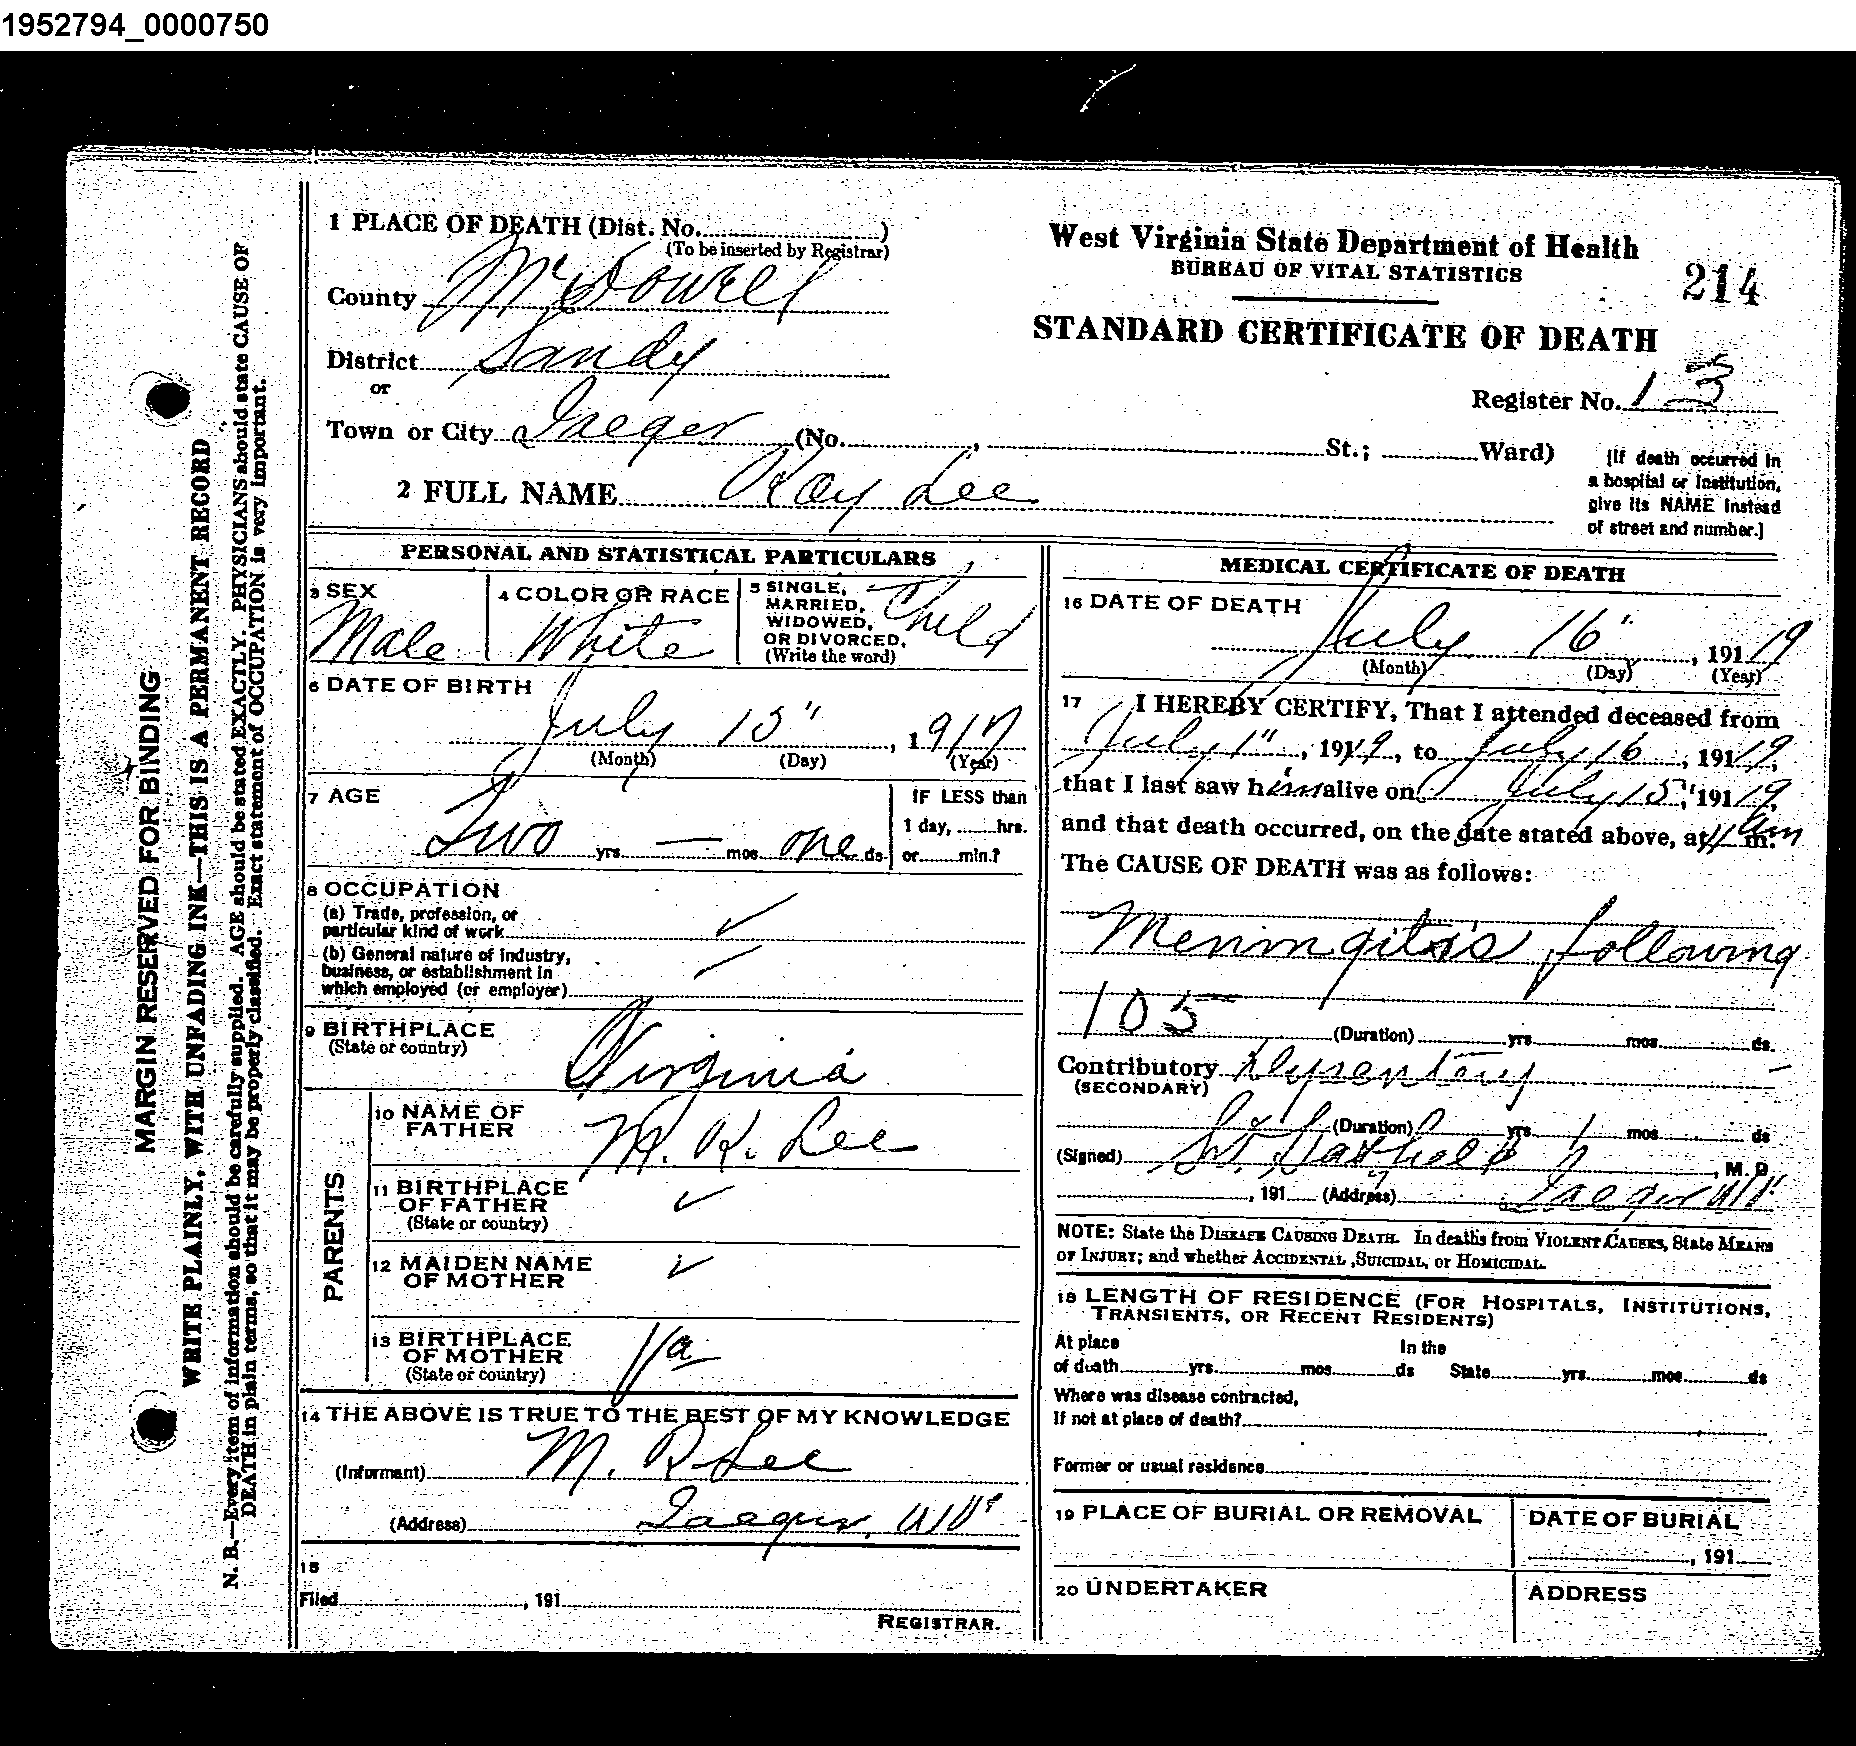 1952794_0000750
1 PLACE OF DEATH (Dist. No. )
(To be inserted by Registrar)
County McDowell
District Sandy
or
Town or City Iaeger (No. , St.; Ward)
2 FULL NAME Ray Lee
West Virginia State Department of Health
BUREAU OF VITAL STATISTICS
214
STANDARD CERTIFICATE OF DEATH
Register No. 13
[If death occurred in
a hospital or institution,
give its NAME instead
of street and number.]
MARGIN RESERVED FOR BINDING
WRITE PLAINLY, WITH UNFADING INK—THIS IS A PERMANENT RECORD
N. B.—Every item of information should be carefully supplied. AGE should be stated EXACTLY. PHYSICIANS should state CAUSE OF
DEATH in plain terms, so that it may be properly classified. Exact statement of OCCUPATION is very important.
PERSONAL AND STATISTICAL PARTICULARS
3 SEX
Male
4 COLOR OR RACE
White
5 SINGLE,
MARRIED,
WIDOWED,
OR DIVORCED.
(Write the word)
Child
6 DATE OF BIRTH
July 15", 1917
(Month) (Day) (Year)
7 AGE
Two yrs — mos one ds
IF LESS than
1 day, hrs.
or min.?
8 OCCUPATION
(a) Trade, profession, or
particular kind of work ✓
(b) General nature of industry,
business, or establishment in
which employed (or employer) ✓
9 BIRTHPLACE
(State or country)
Virginia
PARENTS
10 NAME OF
FATHER
M. R. Lee
11 BIRTHPLACE
OF FATHER
(State or country)
✓
12 MAIDEN NAME
OF MOTHER
✓
13 BIRTHPLACE
OF MOTHER
(State or country)
Va
14 THE ABOVE IS TRUE TO THE BEST OF MY KNOWLEDGE
(Informant) M. R Lee
(Address) Iaeger, W.V.
15
Filed , 191
REGISTRAR.
MEDICAL CERTIFICATE OF DEATH
16 DATE OF DEATH
July 16", 19119
(Month) (Day) (Year)
17 I HEREBY CERTIFY, That I attended deceased from
July 1", 19119, to July 16, 19119,
that I last saw him alive on July 15", 19119,
and that death occurred, on the date stated above, at m.
The CAUSE OF DEATH was as follows:
Meningitis following
105
(Duration) yrs mos ds.
Contributory Dysentery
(SECONDARY)
(Duration) yrs 1 mos ds
(Signed) , M. D
, 191 (Address) Iaeger W.V.
NOTE: State the DISEASE CAUSING DEATH. In deaths from VIOLENT CAUSES, State MEANS
OF INJURY; and whether ACCIDENTAL, SUICIDAL, or HOMICIDAL.
18 LENGTH OF RESIDENCE (FOR HOSPITALS, INSTITUTIONS,
TRANSIENTS, OR RECENT RESIDENTS)
At place
of death yrs mos ds
In the
State yrs mos ds
Where was disease contracted,
If not at place of death?
Former or usual residence
19 PLACE OF BURIAL OR REMOVAL
DATE OF BURIAL
, 191
20 UNDERTAKER
ADDRESS